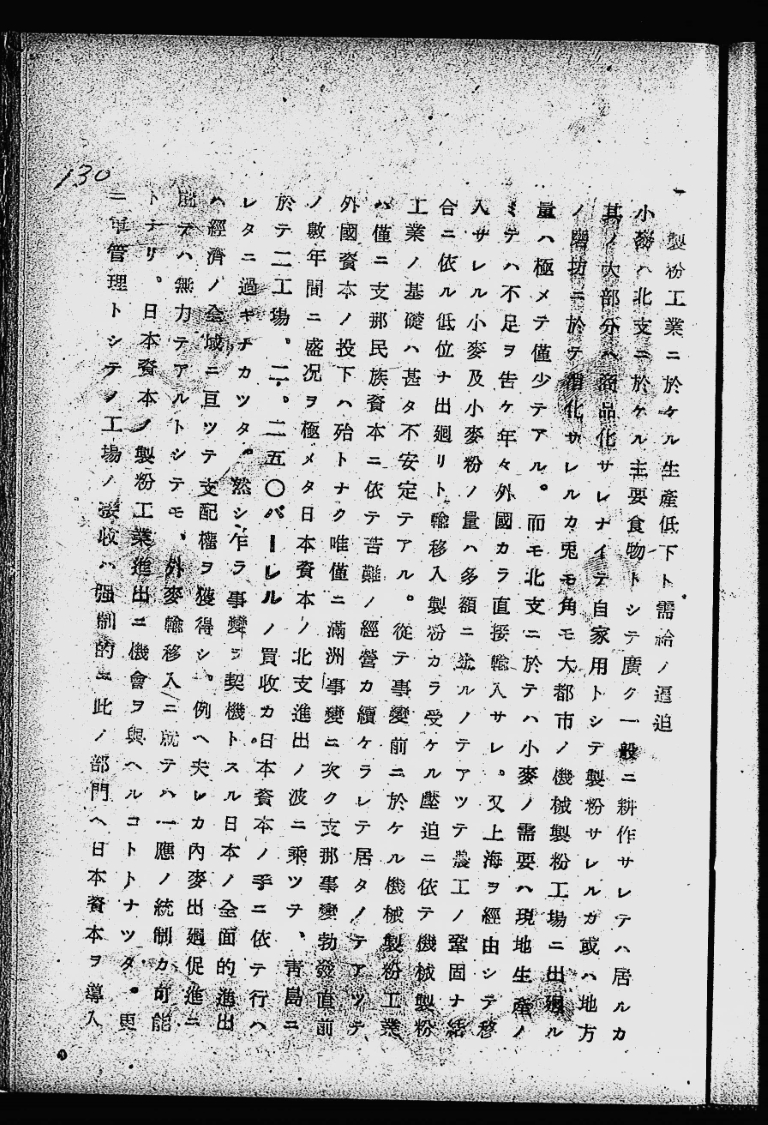 130
一 製粉工業ニ於ケル生産低下ト需給ノ逼迫
小麥ハ北支ニ於ケル主要食物トシテ廣ク一般ニ耕作サレテハ居ルカ
其ノ大部分ハ商品化サレナイテ自家用トシテ製粉サレルカ或ハ地方
ノ磨坊ニ於テ消化サレルカ兎モ角モ大都市ノ機械製粉工場ニ出廻ル
量ハ極メテ僅少テアル。而モ北支ニ於テハ小麥ノ需要ハ現地生產ノ
ミテハ不足ヲ告ケ年々外國カラ直接輸入サレ。又上海ヲ經由シテ移
入サレル小麥及小麥粉ノ量ハ多額ニ ルノテアツテ農工ノ鞏固ナ結
合ニ依ル低位ナ出廻リト輸移入製粉カラ受ケル壓迫ニ依テ機械製粉
工業ノ基礎ハ甚タ不安定テアル。從テ事變前ニ於ケル機械製粉工業
ハ僅ニ支那民族資本ニ依テ苦難ノ經營カ續ケラレテ居タノテアツテ、
外國資本ノ投下ハ殆トナク唯僅ニ滿洲事變ニ次ク支那事變勃發直前
ノ數年間ニ盛況ヲ極メタ日本資本ノ北支進出ノ波ニ乘ツテ、靑島ニ
於テ二工場。二。二五〇バーレルノ買收カ日本資本ノ手ニ依テ行ハ
レタニ過キナカツタ。然シ乍ラ事變ヲ契機トスル日本ノ全面的進出
ハ經濟ノ全域ニ亘ツテ支配權ヲ獲得シ。例ヘ夫レカ內麥出廻促進ニ
關テハ無力テアルトシテモ、外麥輸移入ニ就テハ一應ノ統制カ可能
トナリ。日本資本ノ製粉工業進出ニ機會ヲ與ヘルコトトナツタ。更
ニ軍管理トシテノ工場ノ接收ハ强制的ニ此ノ部門ヘ日本資本ヲ導入